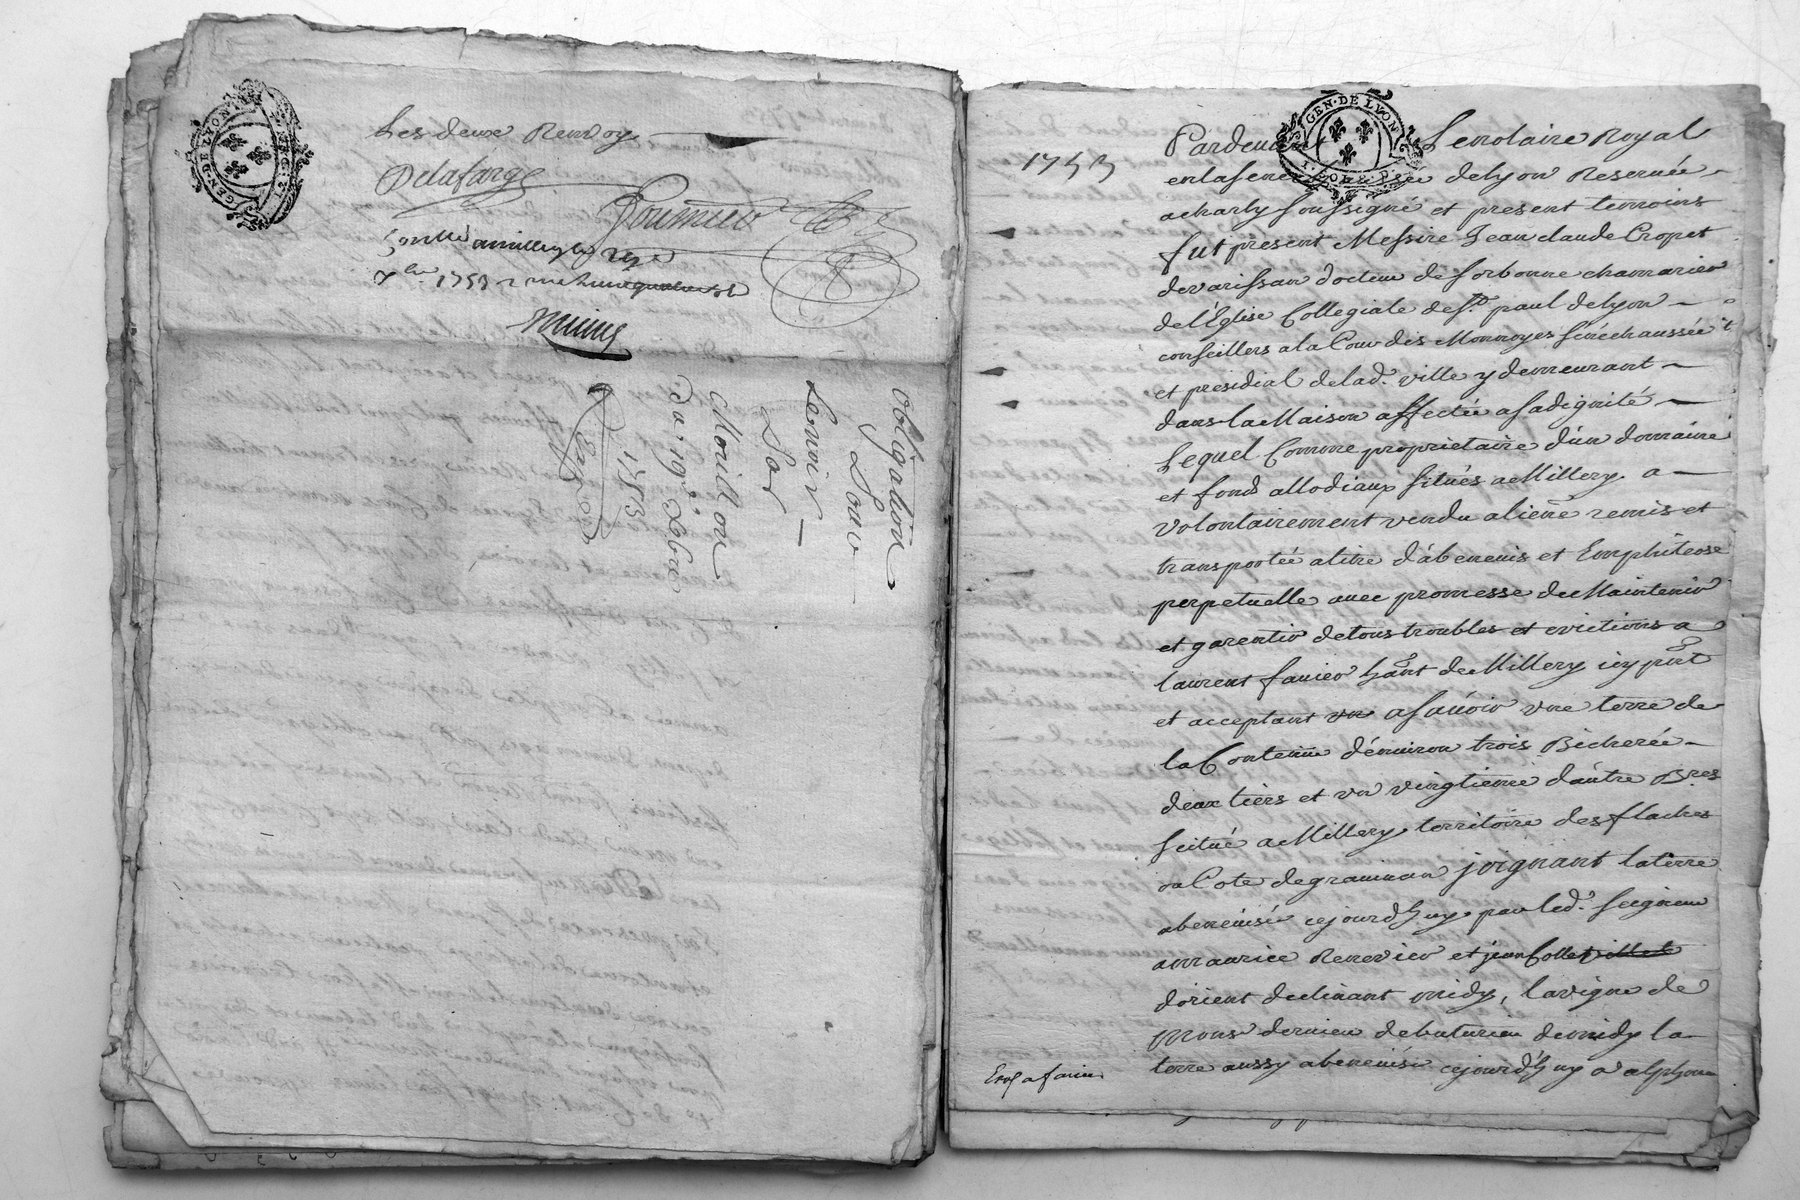 GEN·DE LYON
Les deux Renvoys
Delafarge
Fournier
1753
Obligation
Pour
Lenoir
Sur
Mouillon
du 19e Xbre
1753
GEN·DE LYON
1753
Pardevant Le notaire Royal
en la senechaussée de Lyon Reservée
a charly soussigné et present temoins
fut present Messire Jean claude Cropet
devarissan docteur de sorbonne chamarier
de l'Eglise Collegiale de St. paul de Lyon
conseillers a la Cour des Monnoyes senéchaussée
et presidial de lad. ville y demeurant
dans la Maison affectée a sa dignité
Lequel Comme proprietaire d'un domaine
et fonds allodiaux situés a Millery a
volontairement vendu aliené remis et
transportée a titre d'abenevis et Emphiteose
perpetuelle avec promesse de Maintenir
et garentir de tous troubles et evictions a
laurent favier hant de Millery icy pnt
et acceptant asavoir une terre de
la Contenue d'environ trois Bicherée
deux tiers et un vingtieme d'autre Bres
scitué a Millery territoire des flaches
ou Cote de gravinan joignant la terre
abenevisée cejourd'huy par led. seigneur
a maurice Renevier et jean Collet
d'orient declinant midy, la vigne de
Mons. dervieu debuturieu de midy la
terre aussy abenevisée cejourd'huy a alphonse